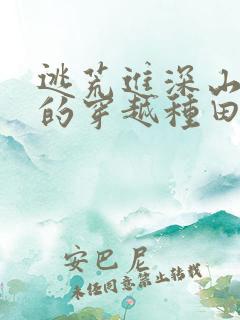 逃荒進深山
的穿越種田
安巴尼
未经同意禁止转载